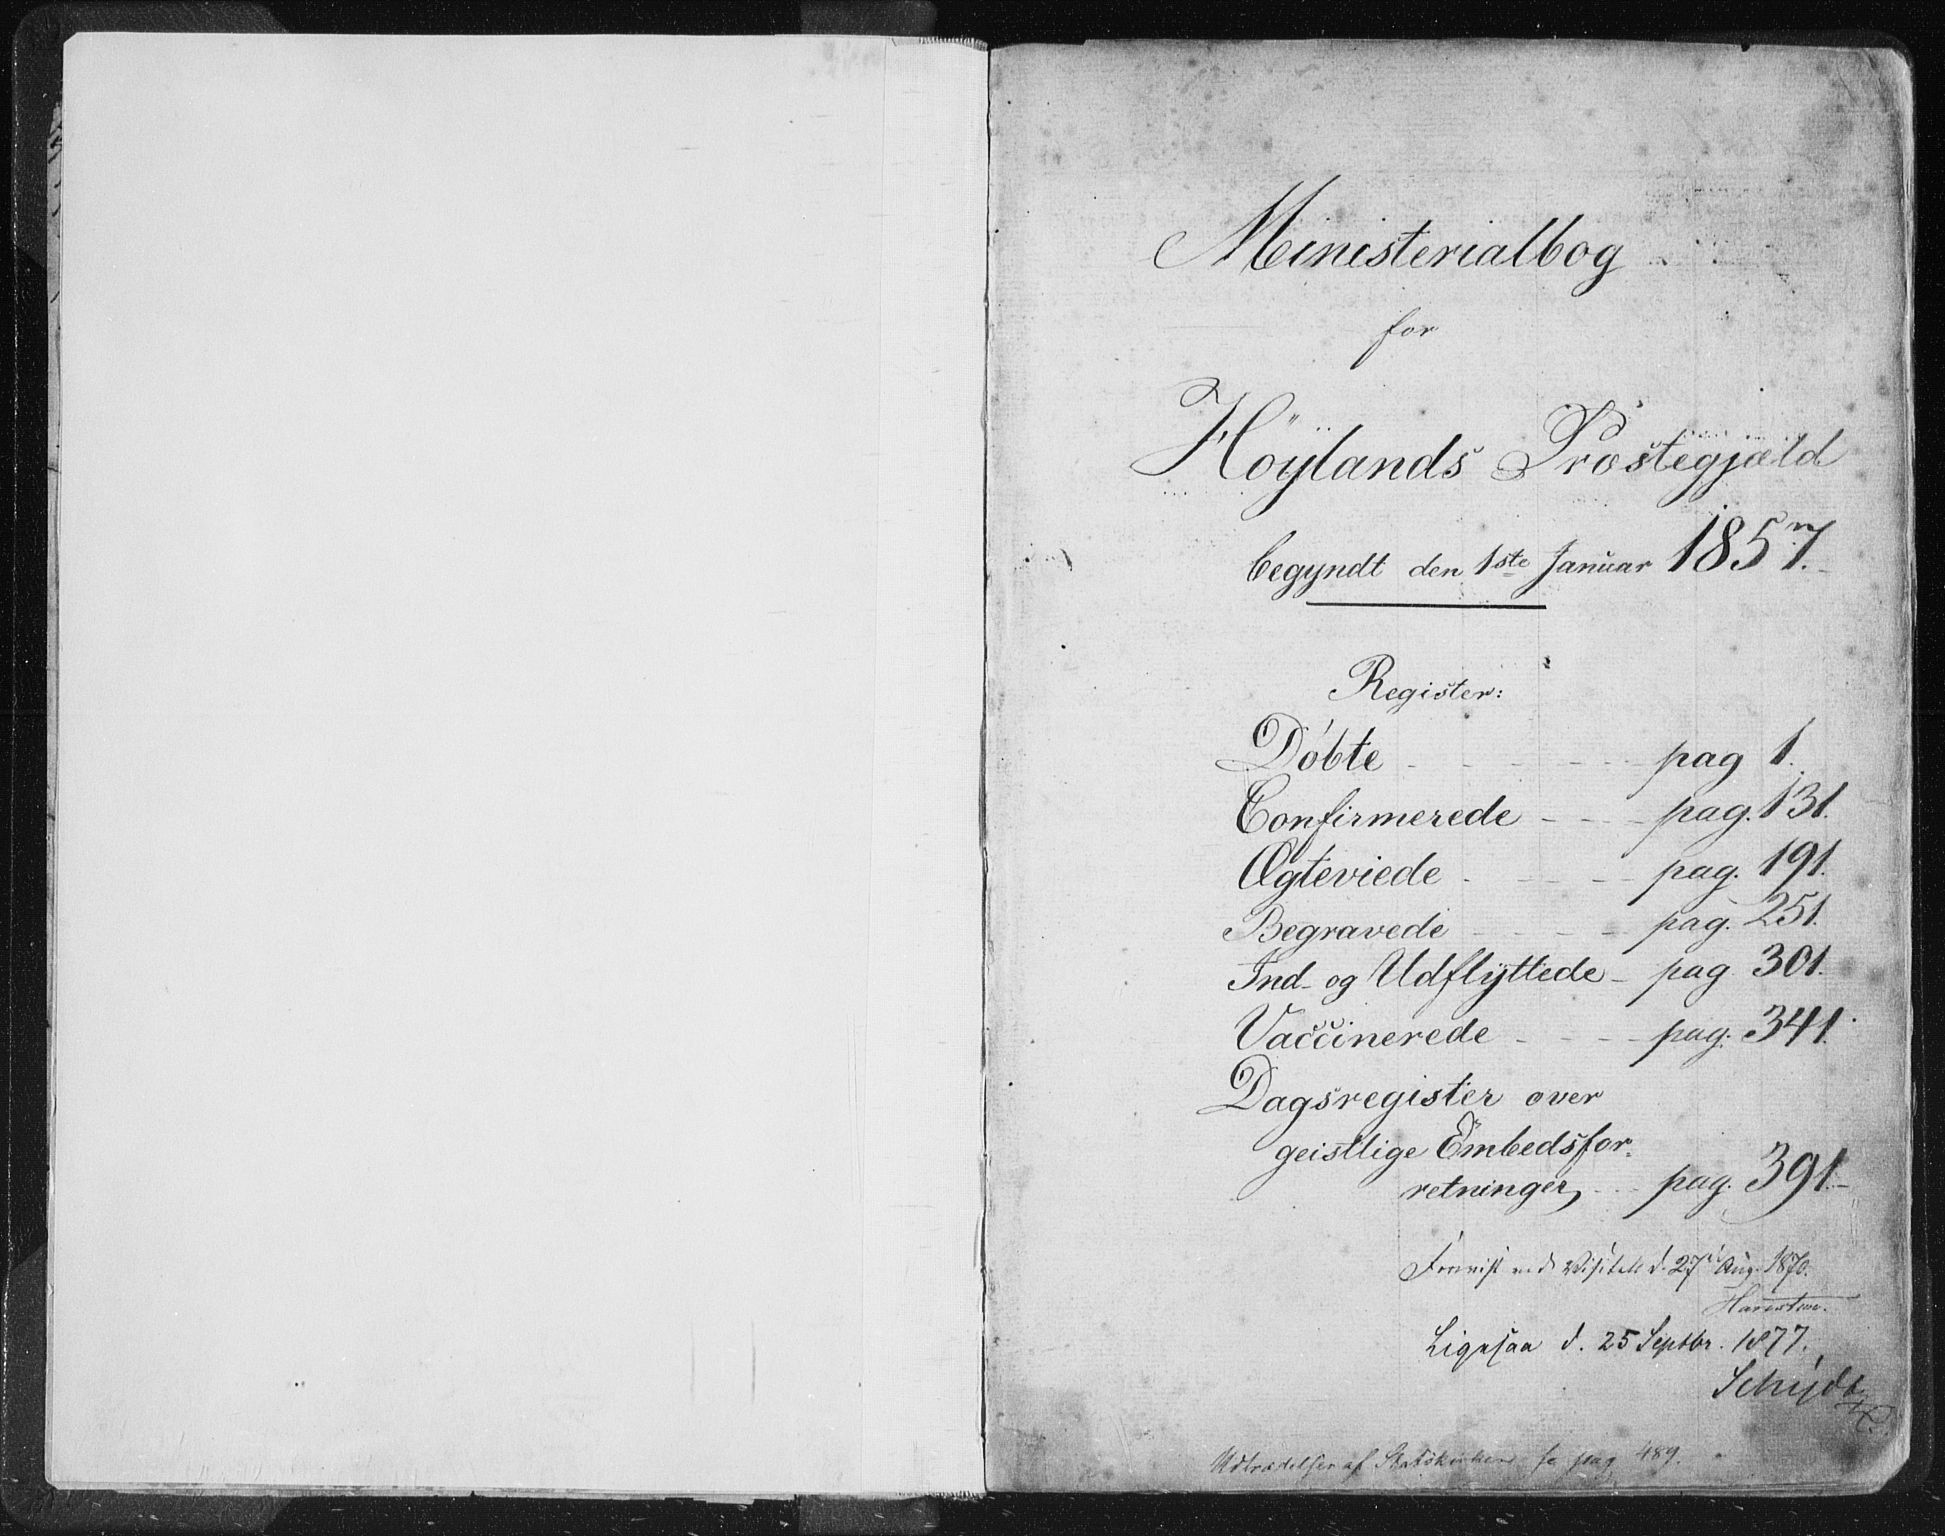 Ministerialbog
for
Höÿlands Præstegjæld
begyndt den 1ste Januar 1857.
Register:
Döbte - - - - - - pag 1.
Confirmerede - - - - pag. 131.
Ægteviede - - - - - pag. 191.
Begravede - - - - - pag. 251.
Ind- og Udflÿttede - pag. 301.
Vaccinerede - - - - pag. 341.
Dagsregister over
geistlige Embedsfor-
retninger, - - - pag. 391.
Forevist ved Visitats d. 27de Aug. 1870.
Ligesaa d. 25 Septbr. 1877.
Udtrædelser af Statskirken se pag 489.